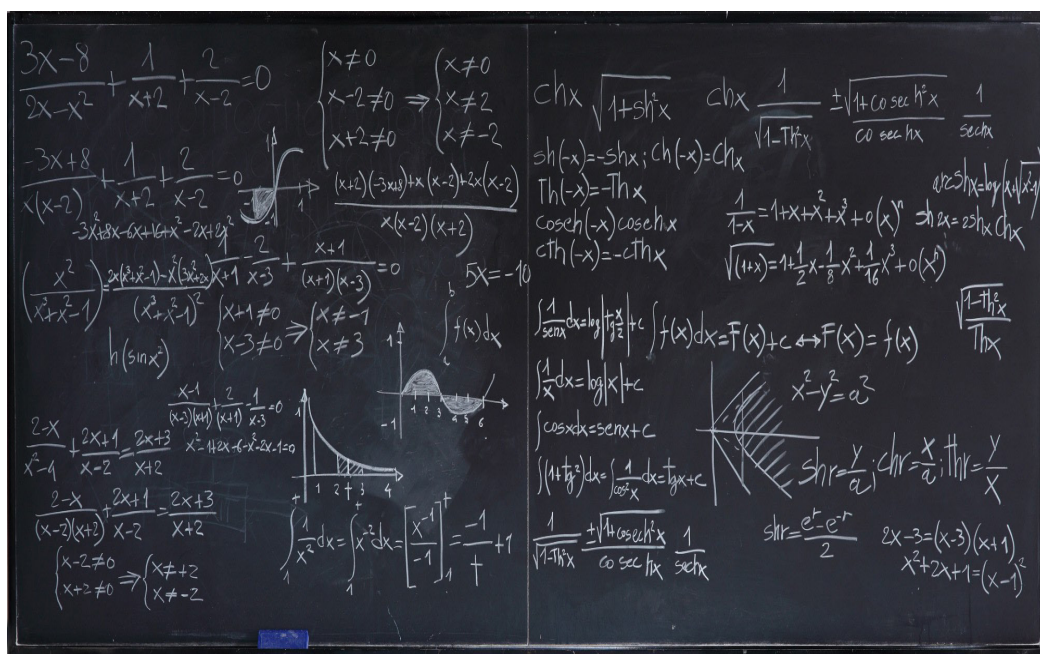 (3x-8)/(2x-x²) + 1/(x+2) + 2/(x-2) = 0
{x≠0 {x≠0
{x-2≠0 ⇒ {x≠2
{x+2≠0 {x≠-2
(-3x+8)/(x(x-2)) + 1/(x+2) + 2/(x-2) = 0
((x+2)(-3x+8)+x(x-2)+2x(x-2))/(x(x-2)(x+2))
-3x²+8x-6x+16+x²-2x+2x²
(x²/(x³+x²-1)) = (2x(x³+x²-1)-x²(3x²+2x))/(x³+x²-1)²
1/(x+1) - 2/(x-3) + (x+1)/((x+1)(x-3)) = 0
5x=-10
{x+1≠0 ⇒ {x≠-1
{x-3≠0 {x≠3
∫ f(x)dx
h(sinx²)
1 -1 1
1 -1 1 2 3 4 5 6
(x-1)/((x-3)(x+1)) + 2/(x+1) - 1/(x-3) = 0
x²-1+2x-6-x²-2x-1=0
(2-x)/(x²-4) + (2x+1)/(x-2) = (2x+3)/(x+2)
1 2 t 3 4
(2-x)/((x-2)(x+2)) + (2x+1)/(x-2) = (2x+3)/(x+2)
{x-2≠0 ⇒ {x≠+2
{x+2≠0 {x≠-2
∫₁ᵗ 1/x² dx = ∫₁ᵗ x⁻² dx = [x⁻¹/-1]₁ᵗ = -1/t + 1
chx √(1+sh²x) chx 1/√(1-Th²x) ±√(1+cosech²x)/cosechx 1/sechx
sh(-x)=-shx; Ch(-x)=Chx
Th(-x)=-Thx
coseh(-x)cosehx
cth(-x)=-cthx
arcshx=log(x+√x²-1
1/(1-x) = 1+x+x²+x³+o(x)ⁿ
sh2x=2shxChx
√(1+x) = 1+1/2x-1/8x²+1/16x³+o(xⁿ)
∫1/senx dx=log|tg x/2|+c
∫f(x)dx=F(x)+c↔F(x)=f(x)
√(1-Th²x)/Thx
∫1/x dx=log|x|+c
x²-y²=a²
∫cosxdx=senx+c
∫(1+tg²)dx=∫1/cos²x dx=tgx+c
shr=y/a; chr=x/a; thr=y/x
1/√(1-Th²x) ±√(1+cosech²x)/cosechx 1/sechx
shr=(eʳ-e⁻ʳ)/2
2x-3=(x-3)(x+1)
x²+2x+1=(x-1)²